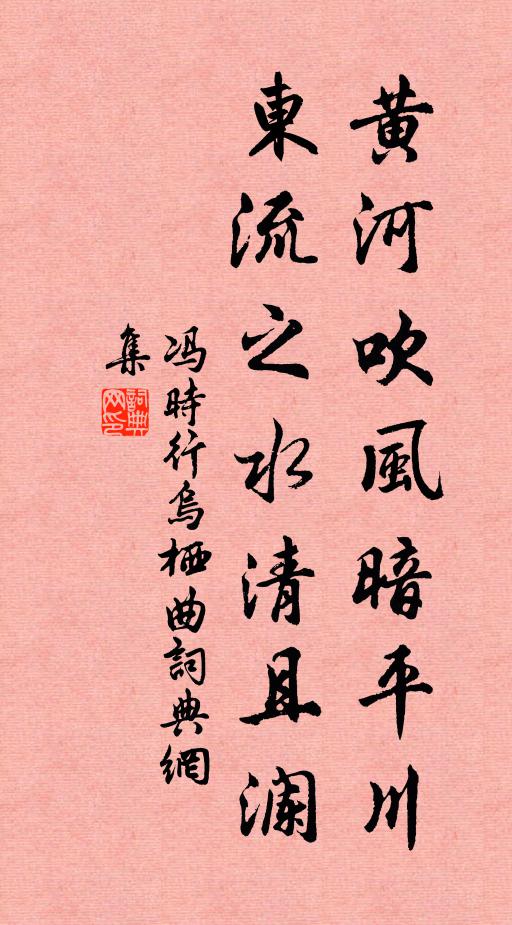 黄河吹風暗平川
東流之水清且澜
冯時行烏栖曲詞典網
集
詞典网印